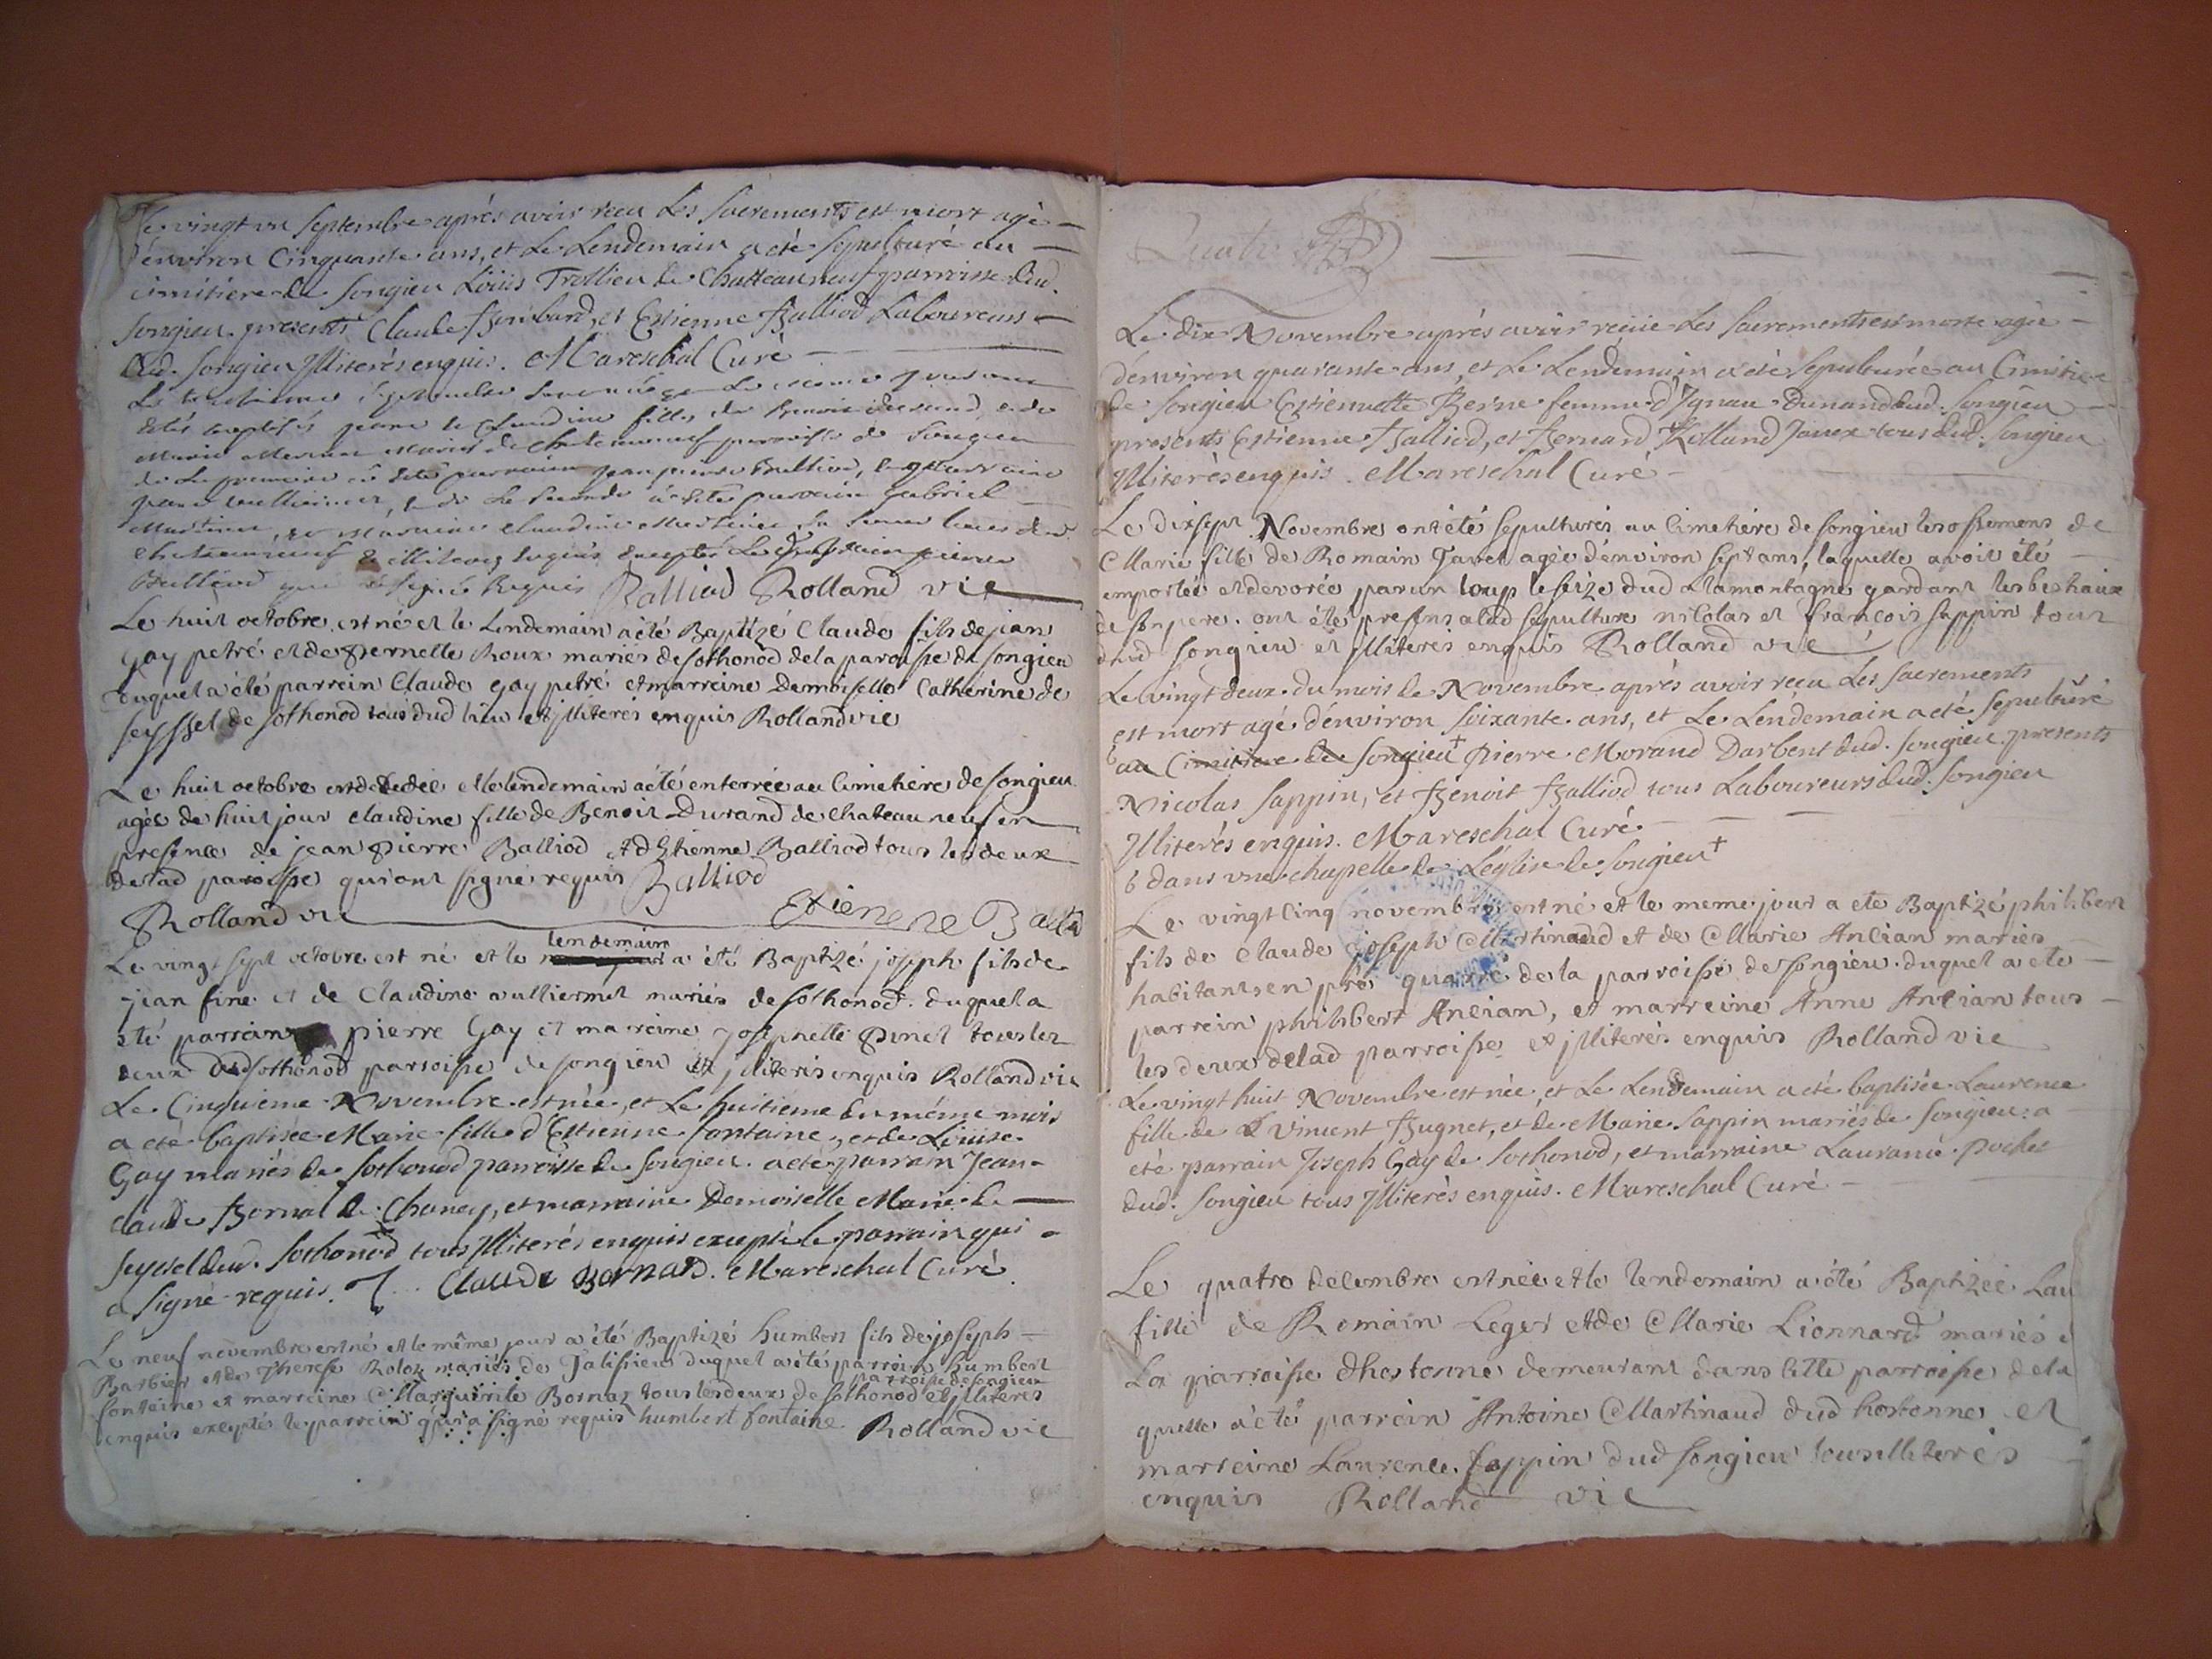 Le vingt un septembre aprés avoir recu les sacrements est mort agé
d'environ cinquante ans, et le lendemain a eté sepulturé au
cimitiere de songieu Loüis Trollieu de Chatteauneuf parroisse dud.
songieu. presents Claude et Estienne Balliod Laboureurs
dud. songieu Illiterés enquis. Mareschal Curé
Jeanne et Claudine filles de Benoit Durand, et de
Marie mariés de chateauneuf parroisse de songieu
de la premiere a eté parrain jean pierre Balliod, et marraine
et de la seconde a eté parrain gabriel
Martinet, et marraine claudine
chateauneuf et illiterez enquis excepté le parrain pierre
Balliod qui a signé requis Balliod Rolland vic
Le huit octobre est né et le lendemain a été Baptizé Claude fils de jean
Gay petré et de pernette Roux mariés de sothonod de la paroisse de songieu
duquel a été parrein Claude gay petré et marreine Demoiselle Catherine de
seyssel de sothonod tous dud lieu et jlliterés enquis Rolland vic
Le huit octobre est decedée et le lendemain a été enterrée au cimetiere de songieu
agée de huit jour claudine fille de Benoit Durand de chateauneuf en
presence de jean pierre Balliod et d Etienne Balliod tous les deux
de lad paroisse qui ont signé requis Balliod
Rolland vic Etiene Balli
lendemain
Le vingt sept octobre est né et le a été Baptizé joseph fils de
jean fine et de Claudine vulliermet mariés de sothonod. duquel a
eté parrain pierre Gay et marreine josephette pinet tous les
deux dud sothonod parroisse de songieu et jlliterés enquis Rolland vic
Le Cinquieme Novembre est née, et Le huitieme du même mois
a eté baptisée Marie fille d'Estienne fontaine, et de Loüise
Gay mariés de Sothonod parroisse de songieu. a eté parrain Jean-
claude Bornat de Chaney, et marraine Demoiselle Marie de
seyssel dud. Sothonod tous Illiterés enquis excepté le parrain qui
a signé requis. J. Claude Bornard. Mareschal Curé
Le neuf novembre est né et le même jour a été Baptizé humbert fils de joseph
Barbier et de Therese Rolet mariés de Talissieu duquel a étés parrein humbert
parroisse de songieu
fonteine et marreine Marguerite Bornaz tous les deux de sothonod et jlliterés
enquis exceptés le parrein qui a signé requis humbert fontaine Rolland vic
Quatr
Le dix Novembre aprés avoir recüe les sacrements est morte agée
d'environ quarante ans, et Le Lendemain a eté sepulturée au Cimitiere
de songieu Estiennette Berne femme d'Ignace Dunand dud. songieu
presents Estienne Balliod, et Bernard Rolland Janex tous dud. songieu
Illiterés enquis. Mareschal Curé
Le dixsept Novembre ont été sepulturés au Cimetiére de songieu les ossemens de
Marie fille de Romain Tavet agée d'environ sept ans, laquelle avoit été
emportée et devorée par un loup le seize dud a la montagne gardant les bechaux
de son pere. ont étés presens a lad sepulture nicolas et francois sappin tous
dud songieu et jlliterés enquis Rolland vic
Le vingt deux du mois de Novembre aprés avoir recu Les sacrements
est mort agé d'environ soixante ans, et Le Lendemain a eté sepulturé
6 au Cimitiere de songieu + pierre Morand Darbent dud. songieu. presents
Nicolas sappin, et Benoit Balliod tous Laboureurs dud. songieu
Illiterés enquis. Mareschal Curé
6 dans une chapelle de L'église de songieu +
Le vingt cinq novembre est né et le meme jour a ete Baptizé philibert
fils de Claude joseph Martinaud et de Marie Ancian mariés
habitants en pré quarré de la parroisse de songieu. duquel a ete
parrein philibert Ancian, et marreine Anne Ancian tous
les deux de lad parroisse et jlliterés enquis Rolland vic
Le vingt huit Novembre est née, et Le Lendemain a eté baptisée Laurence
fille de Vincent Bugnet, et de Marie Sappin mariés de songieu. a
eté parrain Joseph Gay de Sothonod, et marraine Laurance pochet
dud. songieu tous Illiterés enquis. Mareschal Curé
Le quatre decembre est née et le lendemain a été Baptizée Lau
fille de Romain Leger et de Marie Lionnard mariés
La parroisse d'hostonne demeurant dans cette parroisse de la
quelle a eté parrein Antoine Martinaud dud hostonne et
marreine Laurence sappin dud songieu tous illiterés
enquis Rolland vic